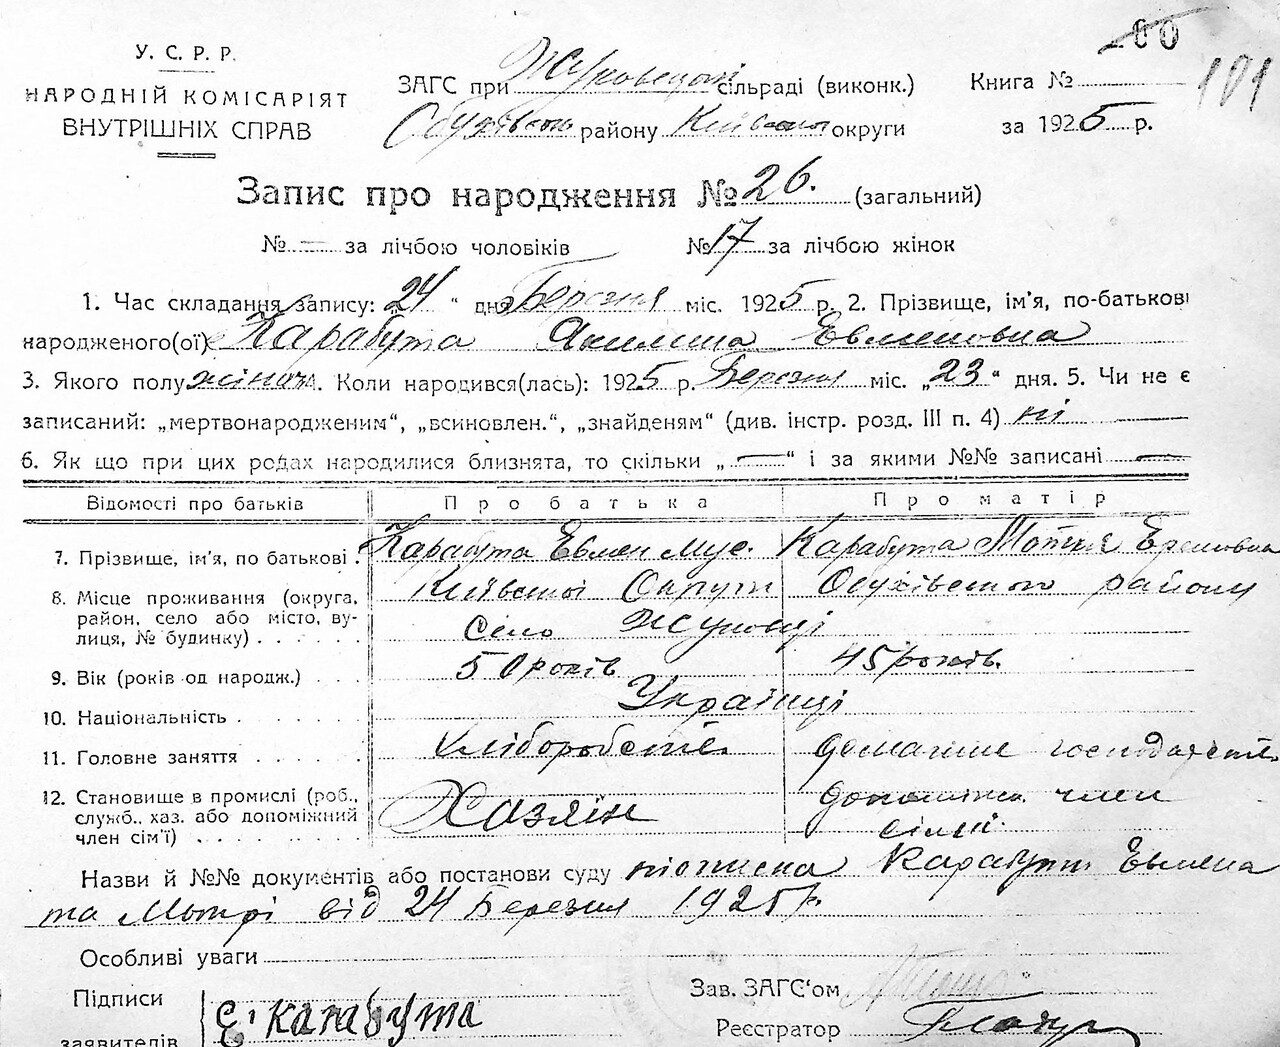 200
101
У. С. Р. Р.
НАРОДНІЙ КОМІСАРІЯТ
ВНУТРІШНІХ СПРАВ
ЗАГС при Жуковецькій сільраді (виконк.)
Обухівського району Київської округи
Книга №
за 1925 р.
Запис про народження № 26. (загальний)
№ — за лічбою чоловіків № 17 за лічбою жінок
1. Час складання запису: „24“ дня Березня міс. 1925 р. 2. Прізвище, ім’я, по-батькові
народженого(ої) Карабута Акилина Евменовна
3. Якого полу жіноч. 4. Коли народився(лась): 1925 р. Березня міс. „23“ дня. 5. Чи не є
записаний: „мертвонародженим“, „всиновлен.“, „знайденям“ (див. інстр. розд. III п. 4) ні
6. Як що при цих родах народилися близнята, то скільки „—“ і за якими №№ записані —
Відомості про батьків Про батька Про матір
7. Прізвище, ім’я, по батькові . Карабута Евмен Мус. Карабута Мотря Еремовна
8. Місце проживання (округа, Київської Округи Обухівського району
район, село або місто, ву- село Жуковці
лиця, № будинку) . . . . .
9. Вік (років од народж.) . . . 50 років 45 років.
10. Національність . . . . . . Українці
11. Головне заняття . . . . . . хліборобство домашнє господарство
12. Становище в промислі (роб., Хазяїн допоміжн. член
служб., хаз. або допоміжний сімї.
член сім’ї) . . . . . . . .
Назви й №№ документів або постанови суду підписка Карабути Евмена
та Мотрі від 24 Березня 1925 р.
Особливі уваги
Підписи Е. Карабута Зав. ЗАГС‘ом
заявителів Реєстратор